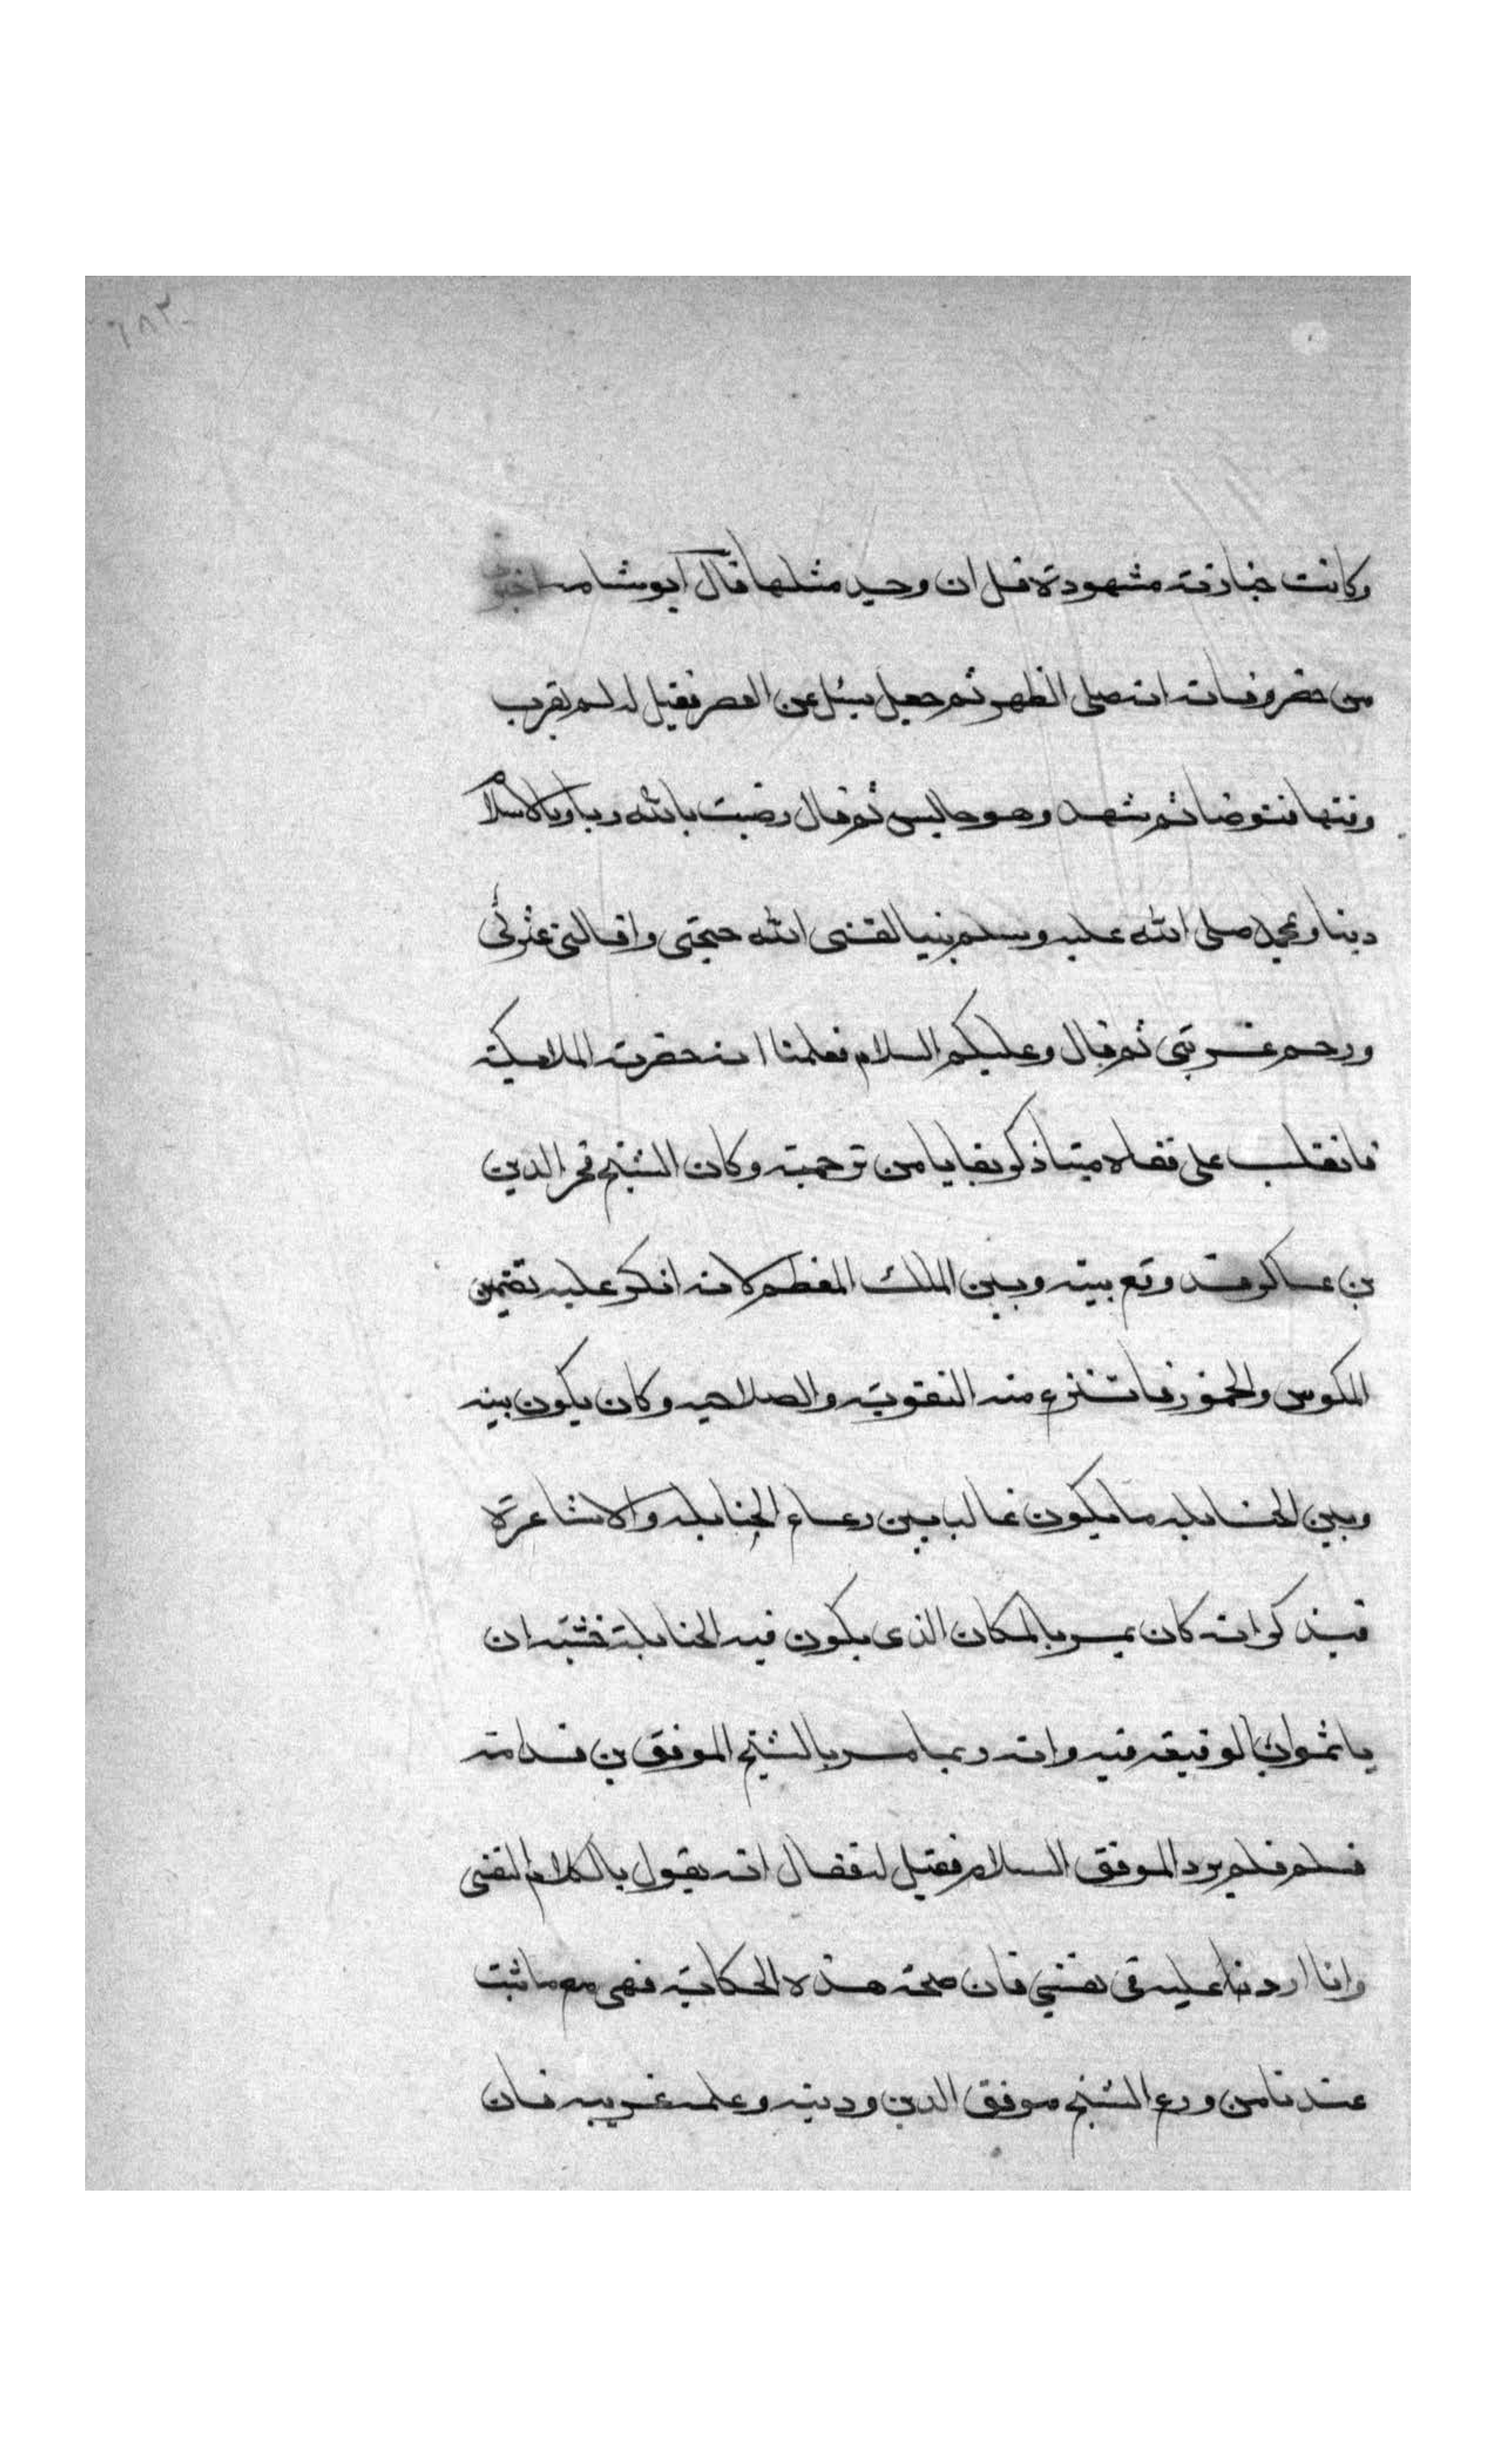 ٦٨٢
وكانت جنازته مشهودة قل ان وجد مثلها قال ابو شامه اخبر
من حضر وفاته انه صلى الظهر ثم جعل يسئل عن العصر فقيل له لم يقرب
وقتها فتوضا ثم تشهد وهو جالس ثم قال رضيت بالله ربا وبالاسلام
دينا وبمحمد صلى الله عليه وسلم نبيا لقننى الله حجتى واقالنى عثرتى
ورحم غربتى ثم قال وعليكم السلام فعلمنا انه حضرت الملائكة
فانقلب على قفاه ميتا ذكر بقايا من ترجمته وكان الشيخ فخر الدين
بن عساكر قد وقع بينه وبين الملك المعظم لانه انكر عليه تضمين
المكوس والخمور فانتزع منه التقوية والصلاحيه وكان يكون بينه
وبين الحنابله ما يكون غالبا بين رعاع الحنابله والاشاعرة
فيذكر انه كان يمر بالمكان الذى يكون فيه الحنابلة خشية ان
ياثموا بالوقيعة فيه وانه ربما مر بالشيخ الموفق بن قدامة
فسلم فلم يرد الموفق السلام فقيل له فقال انه يقول بالكلام النفسى
وانا ارد عليه فى نفسي فان صحت هذه الحكاية فهى مع ما ثبت
عندنا من ورع الشيخ موفق الدين ودينه وعلمه غريبه فان